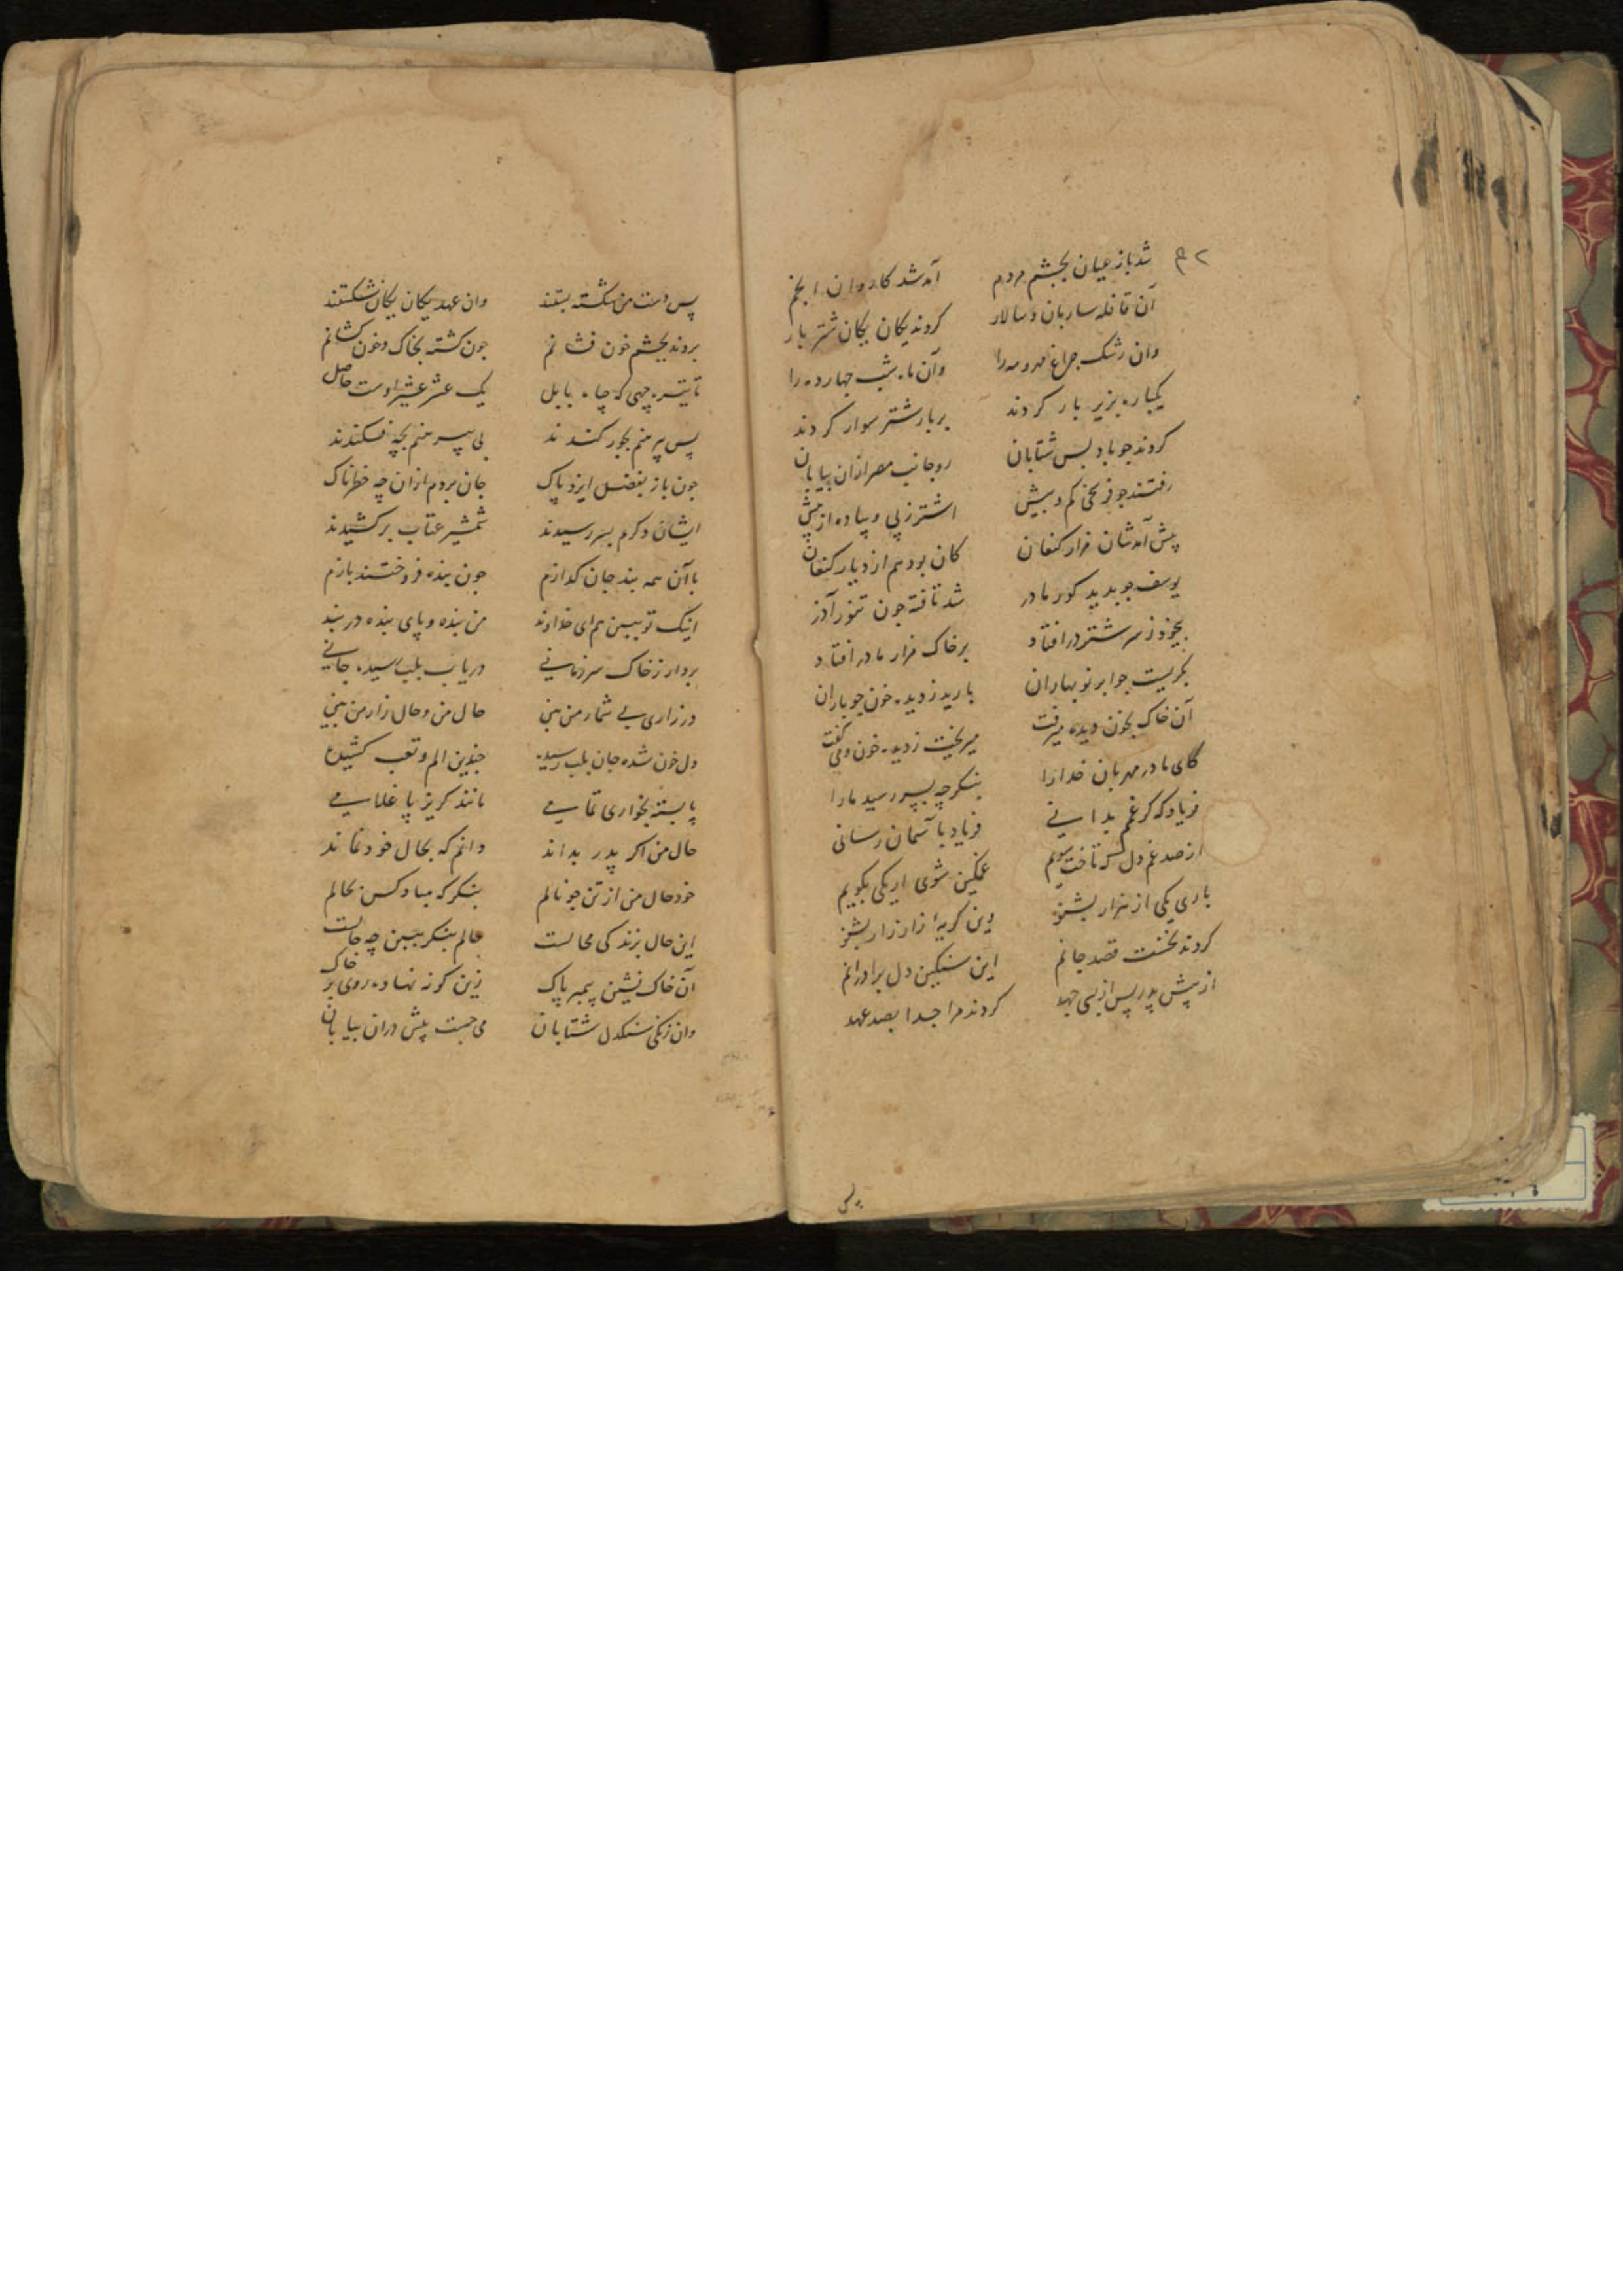 شد باز عیان بجشم مردم آمد شد کاروان انجم
آن قافله ساربان و سالار کردند یکان یکان شتر بار
وان رشک جراغ مهر و مه را وآن ماه شب جهارده را
یکباره بزیر بار کردند بر بار شتر سوار کردند
کردند جو باد بس شتابان رو جانب مصر ازان بیابان
رفتند جو فرسخی کم و بیش اشتر ز پی و پیاده از پیش
پیش آمدشان مزار کنعان کان بود هم از دیار کنعان
یوسف جو بدید کور مادر شد تافته جون تنور آذر
بیخود ز سر شتر در افتاد بر خاک مزار مادر افتاد
بکریست جو ابر نوبهاران بارید ز دیده خون جو باران
آن خاک بخون دیده میرفت میریخت ز دیده خون و می کفت
کای مادر مهربان خدا را بنکر چه بسر رسید ما را
فریاد که کر غمم بدانی فریاد با آسمان رسانی
از صد غم دل که تاخت سویم غمکین شوی ار یکی بکویم
باری یکی از هزار بشنو وین کریهٔ زار زار بشنو
کردند نخست قصد جانم این سنکین دل برادرانم
از پیش پدر پس از بسی جهد کردند مرا جدا بصد عهد
پس دست من شکسته بستند وان عهد یکان یکان شکستند
بردند بجشم خون فشانم جون کشته بخاک و خون کشانم
تا تیره چهی که چاه بابل یک عشر عشیر اوست حاصل
پس پیرهنم بجور کندند بی پیرهنم بچه فکندند
جون باز بفضل ایزد پاک جان بردم ازان چه خطرناک
ایشان دکرم بسر رسیدند شمشیر عتاب بر کشیدند
با آن همه بند جان کدازم جون بنده فروختند بازم
اینک تو ببین هم ای خداوند من بنده و پای بنده در بند
بردار ز خاک سر زمانی دریاب بلب رسیده جانی
در زاری بی شمار من بین حال من و حال زار من بین
دل خون شده جان بلب رسیده جندین الم و تعب کشیده
پا بسته بخواری تمامی مانند کریزپا غلامی
حال من اکر پدر بداند دانم که بحال خود نماند
خود حال من از تن جو نالم بنکر که مباد کس بحالم
این حال بزندکی محالست حالم بنکر ببین چه حالست
آن خاک نشین پیمبر پاک زین کونه نهاده روی بر خاک
وان زنکی سنکدل شتابان می جست پیش دران بیابان
پس